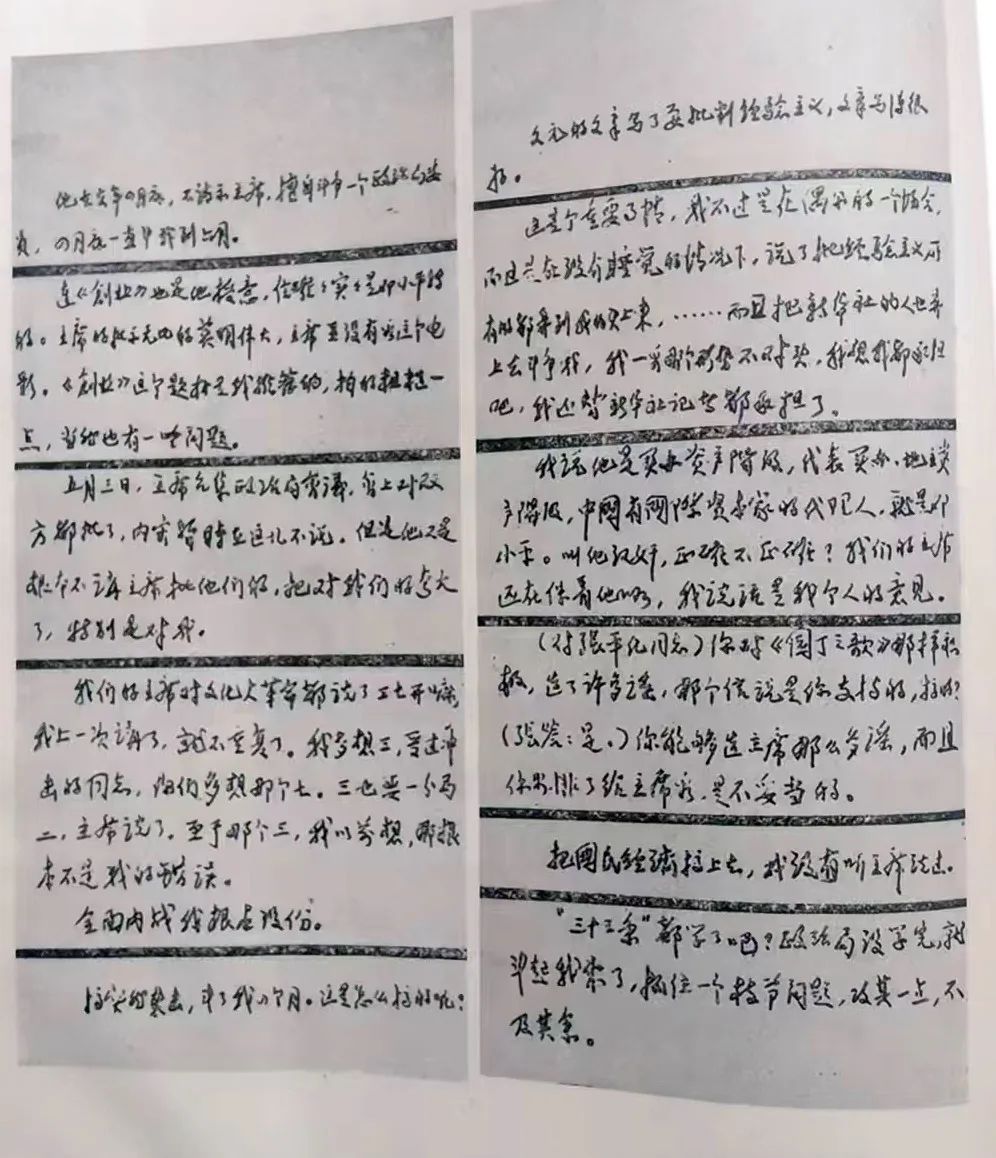 他去年四月底，不请示主席，擅自斗争一个政治局委
员，四月底一直斗我到六月。
连《创业》也是他捣意，但确确实实是邓小平搞
的。主席的批示无比的英明伟大，主席并没有看这个电
影。《创业》这个题材是我推荐的，拍的粗糙一
点，当然也有一些问题。
五月三日，主席召集政治局会议，实际上对双
方都批了，内容暂时在这儿不说。但是他又是
根本不讲主席批他们的，把对我们的夸大
了，特别是对我。
我们的主席对文化大革命都说了三七开嘛，
我上一次讲了，就不重复了。我多想三，受过冲
击的同志，你们多想那个七。三也要一分为
二，主席说了。至于那个三，我以前想，那根
本不是我的错误。
全面内战我根本没份。
搞突然袭击，斗了我几个月。这是怎么搞的呢？
文元的文章写了要批判经验主义，文章写得很
好。
这是个重要事情，我不过是在偶然的一个场合，
而且是在没有睡觉的情况下，说了批经验主义，所
有的都弄到我的头上来，……而且把新华社的人也弄
上去斗争我，我一看那个形势不对头，我想我都承担
吧，我还替新华社记者都承担了。
我说他是买办资产阶级，代表买办、地主资
产阶级，中国有国际资本家的代理人，就是邓
小平。叫他汉奸，正确不正确？我们的主席
还在保着他咯，我说这是我个人的意见。
（对张平化同志）你对《园丁之歌》那样积
极，造了许多谣，那个信说是你支持的，
（张答：是。）你能够造主席那么多谣，而且
你安排了给主席看，是不妥当的。
把国民经济搞上去，我没有听主席说过。
“三十三条”都学了吧？政治局没学完，就
斗起我来了，抓住一个枝节问题，攻其一点，不
及其余。